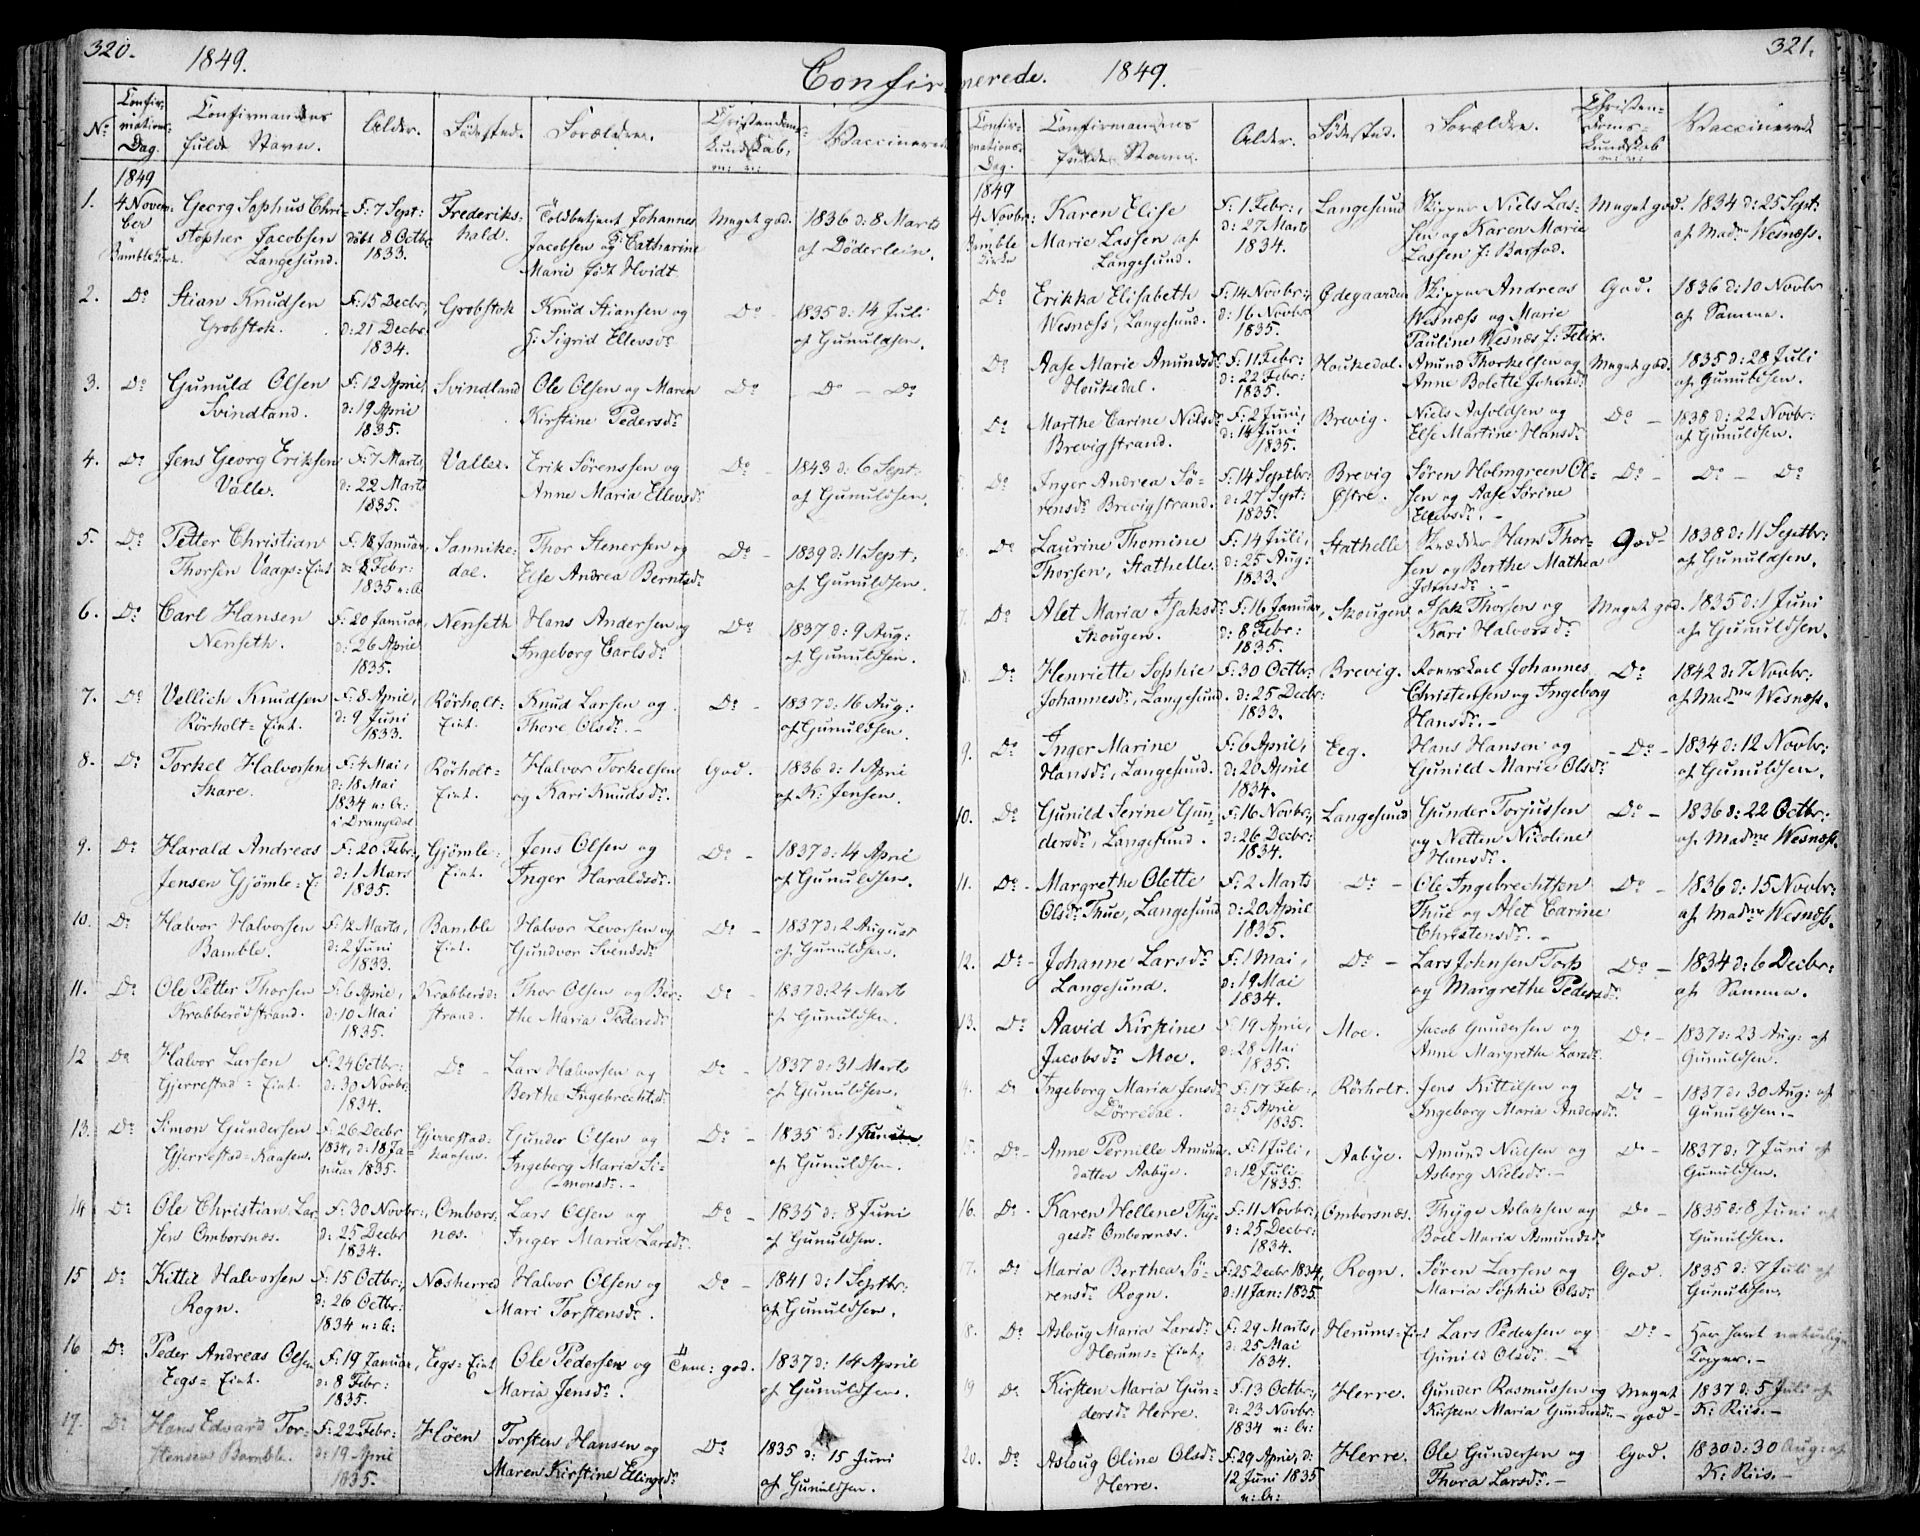 320.
1849.
Confir-
No
Confir-
mations-
Dag.
Confirmandens
fulde Navn.
Alder.
Födested.
Forældre.
Christendoms-
kundskab,
m: v:
Vaccinerede
1849
1. 4 Novem-
ber
Bamble Kirke.
Georg Sophus Chri-
stopher Jacobsen
Langesund.
F: 7 Sept:
döbt 8 Octbr
1833.
Frederiks-
hald.
Toldbetjent Johannes
Jacobsen og Catharine
Marie födt Hvidt.
Meget god.
1836 d: 8 Marts
af Döderlein.
2. Do
Stian Knudsen
Grobstok.
F: 15 Decbr,
d: 21 Decbr
1834.
Grobstok
Knud Stiansen og
H: Sigrid Ellevsdr
Do
1835 d: 14 Juli
af Gunuldsen.
3. Do
Gunuld Olsen
Svindland.
F: 12 April,
d: 19 April
1835.
Svindland
Ole Olsen og Maren
Kirstine Pedersdr
Do
Do - Do
4. Do
Jens Georg Eriksen
Valle.
F: 7 Marts,
d: 22 Marts
1835.
Valle.
Erik Sörenssen og
Anne Maria Ellevsdr
Do -
1843 d: 6 Sept:
af Gunuldsen.
5. Do
Petter Christian
Thorsen Vaags=Eiet
F: 18 Januar,
d: 8 Febr:
1835 n: b:
Sannike-
dal.
Thor Stenersen og
Else Andrea Berntsdr
Do -
1839 d: 11 Sept:
af Gunuldsen.
6. Do
Carl Hansen
Nenseth.
F: 20 Januar,
d: 26 April
1835.
Nenseth
Hans Andersen og
Ingeborg Carlsdr
Do
1837 d: 9 Aug:
af Gunuldsen.
7. Do
Vellich Knudsen
Rörholt=Eiet.
F: 8 April,
d: 9 Juni
1833.
Rörholt=
Eiet.
Knud Larsen og
Thore Olsdr. -
Do -
1837 d: 16 Aug:
af Gunuldsen.
8. Do
Torkel Halvorsen
Skare.
F: 4 Mai,
d: 18 Mai
1834 n: b:
i Drangedal
Rörholt=
Eiet.
Halvor Torkelsen
og Kari Knudsdr.
God.
1836 d: 1 April
af K: Jensen.
9. Do
Harald Andreas
Jensen Gjömle=E:
F: 20 Febr,
d: 1 Mars
1835.
Gjömle=
Eiet.
Jens Olsen og
Inger Haraldsdr.
Do -
1837 d: 14 April
af Gunuldsen.
10. Do
Halvor Halvorsen
Bamble.
F: 12 Marts,
d: 2 Juni
1833.
Bamble
Eiet.
Halvor Levorsen og
Gundvor Svendsdr
Do -
1837 d: 2 August
af Gunuldsen.
11. Do
Ole Petter Thorsen
Krabberödstrand.
F: 6 April,
d: 10 Mai
1835.
Krabberöd-
strand.
Thor Olsen og Ber-
the Maria Pedersdr
Do -
1837 d: 24 Marts
af Gunuldsen.
12 Do
Halvor Larsen
Gjerrestad=Eiet.
F: 24 Octbr:
d: 30 Novbr:
1834.
Do -
Lars Halvorsen og
Berthe Ingebrechtsdr
Do -
1837 d: 31 Marts
af Gunuldsen.
13. Do
Simon Gundersen
Gjerrestad=Kaasen.
F: 26 Decbr
1834, d: 18 Ja-
nuar 1835.
Gjerrestad-
kaasen.
Gunder Olsen og
Ingeborg Maria Si-
monsdr. -
Do -
1835 d: 1 Juni
af Gunuldsen.
14 Do
Ole Christian Lar-
sen Omborsnæs.
F: 30 Novbr:,
d: 25 Decbr
1834.
Ombors-
næs.
Lars Olsen og
Inger Maria Larsdr.
Do -
1835 d: 8 Juni
af Gunuldsen.
15 Do
Kittil Halvorsen
Rogn.
F: 15 Octbr:,
d: 26 Octbr:
1834 n: b:
Næsherred
Halvor Olsen og
Mari Torstensdr.
Do -
1841 d: 1 Septbr:
af Gunuldsen.
16 Do
Peder Andreas Olsen
Eegs=Eiet.
F: 19 Januar,
d: 8 Febr:
1835.
Eegs=Eiet
Ole Pedersen og
Maria Jensdr.
Tem: god.
1837 d: 14 April
af Gunuldsen.
17. Do
Hans Edvard Tor-
stensen Bamble.
F: 22 Febr:
d: 19 April
1835.
Höen
Torsten Hansen og
Maren Kirstine Ellingsdr
Do
1835 d: 15 Juni
af Gunuldsen.
321.
merede. 1849.
Confir-
mations-
Dag.
Confirmandens
fulde Navn.
Alder.
Födested.
Forældre.
Christen-
doms-
kundskab
m: v:
Vaccinerede
1849
4 Novbr:
Bamble
Kirke
Karen Elise
Marie Lassen af
Langesund.
F: 1 Febr:,
d: 27 Marts
1834.
Langesund
Skipper Niels Las-
sen og Karen Marie
Lassen f: Barfod.
Meget god.
1834 d: 25 Sept:
af Madme Wesnæss.
Do
Erikka Elisabeth
Wesnæss, Langesund.
F: 14 Novbr:,
d: 16 Novbr
1835.
Ødegaarden
Skipper Andreas
Wesnæss og Marie
Pauline Wesnæs f: Felix.
God.
1836 d: 10 Novbr
af Samme.
Do
Aase Marie Amundsdr
Houkedal.
F: 11 Febr:
d: 22 Febr:
1835.
Houkedal.
Amund Thorkelsen og
Anne Bolette Johnsdr
Meget god.
1835 d: 28 Juli
af Gunuldsen.
Do
Marthe Carine Nilsdr
Brevigstrand.
F: 2 Juni,
d: 14 Juni
1835.
Brevig.
Niels Asholdsen og
Else Martine Hansdr
Do -
1838 d: 22 Novbr:
af Gunuldsen.
Do
Inger Andrea Sö-
rensdr Brevigstrand.
F: 14 Septbr:
d: 27 Sept:
1835.
Brevig
Østre.
Sören Holmgreen Ol-
sen og Aase Sörine
Ellevsdr. -
Do -
Do - Do
Do
Laurine Thomine
Thorsen, Stathelle.
F: 14 Juli,
d: 25 Aug:
1833.
Stathelle
Skrædder Hans Thor-
sen og Berthe Mathea
Johnsdr. -
God -
1838 d: 11 Septbr:
af Gunuldsen.
7. Do
Alet Maria Isaksdr
Skougen.
F: 16 Januar,
d: 8 Febr:
1835.
Skougen
Isak Thorsen og
Kari Halvorsdr.
Meget god.
1835 d: 1 Juni
af Gunuldsen.
8. Do
Henriette Sophie
Johannesdr, Langesund.
F: 30 Octbr:
d: 25 Decbr:
1833.
Brevig.
Roerskarl Johannes
Christensen og Ingeborg
Hansdr. -
Do -
1842 d: 7 Novbr:
af Madme Wesnæss.
9. Do
Inger Marine
Hansdr, Langesund.
F: 6 April,
d: 20 April
1834.
Eeg.
Hans Hansen og
Gunild Marie Olsdr
- Do -
1834 d: 12 Novbr:
af Gunuldsen.
10. Do
Gunild Serine Gun-
dersdr, Langesund.
F: 16 Novbr,
d: 26 Decbr:
1834.
Langesund
Gunder Torjussen
og Netten Nicoline
Hansdr.
Do -
1836 d: 22 Octbr:
af Madme Wesnæss.
11. Do -
Margrethe Olette
Olsdr Thue, Langesund
F: 2 Marts
d: 20 April
1835.
Do -
Ole Ingebrechtsen
Thue og Alet Carine
Christensdr. -
Do -
1836 d: 15 Novbr:
af Madme Wesnæss.
12. Do -
Johanne Larsdr
Langesund.
F: 1 Mai,
d: 19 Mai
1834.
Do -
Lars Johnsen Torp
og Margrethe Pedersdr.
Do -
1834 d: 6 Decbr:
af Samme.
13. Do
Aavid Kirstine
Jacobsdr Moe.
F: 19 April,
d: 28 Mai
1835.
Moe.
Jacob Gundersen og
Anne Margrethe Larsdr.
Do -
1837 d: 23 Aug: af
Gunuldsen.
4. Do
Ingeborg Maria Jensdr
Dörredal.
F: 17 Febr:,
d: 5 April
1835.
Rörholt.
Jens Kittilsen og
Ingeborg Maria Andersdr.
Do -
1837 d: 30 Aug: af
Gunuldsen. -
5. Do -
Anne Pernille Amunds
datter Aabye.
F: 1 Juli,
d: 12 Juli
1835.
Aabye.
Amund Nielsen og
Asborg Nielsdr. -
Do -
1837 d: 7 Juni af
Gunuldsen.
16. Do -
Karen Hellene Thy-
gesdr Omborsnæs.
F: 11 Novbr:
d: 25 Decbr:
1834.
Omborsnæs.
Thyge Aslaksen og
Boel Maria Asmundsdr
Do -
1835 d: 8 Juni af
Gunuldsen.
7. Do
Maria Berthea Sö-
rensdr Rogn.
F: 25 Decbr 1834,
d: 11 Jan: 1835.
Rogn.
Sören Larsen og
Maria Sophie Olsdr
God.
1835 d: 7 Juli af
Gunuldsen.
8. Do
Asloug Maria Larsdr
Herums=Eiet.
F: 29 Marts,
d: 25 Mai
1834.
Herums=Eiet
Lars Pedersen og
Gunild Olsdr. -
Do -
Har havt naturlige
Kopper. -
19 Do
Kirsten Maria Gun-
dersdr Herre.
F: 13 Octbr:,
d: 23 Novbr:
1834 n: b:
Herre.
Gunder Rasmussen og
Kirsten Maria Gundersdr. -
Meget
god -
1837 d: 5 Juli af
K: Riis. -
20. Do
Asloug Oline Olsdr
Herre.
F: 29 April, d:
12 Juni 1835
n: b:
Herre.
Ole Gundersen og
Thora Larsdr. -
God.
1830 d: 30 Aug: af
K: Riis. -